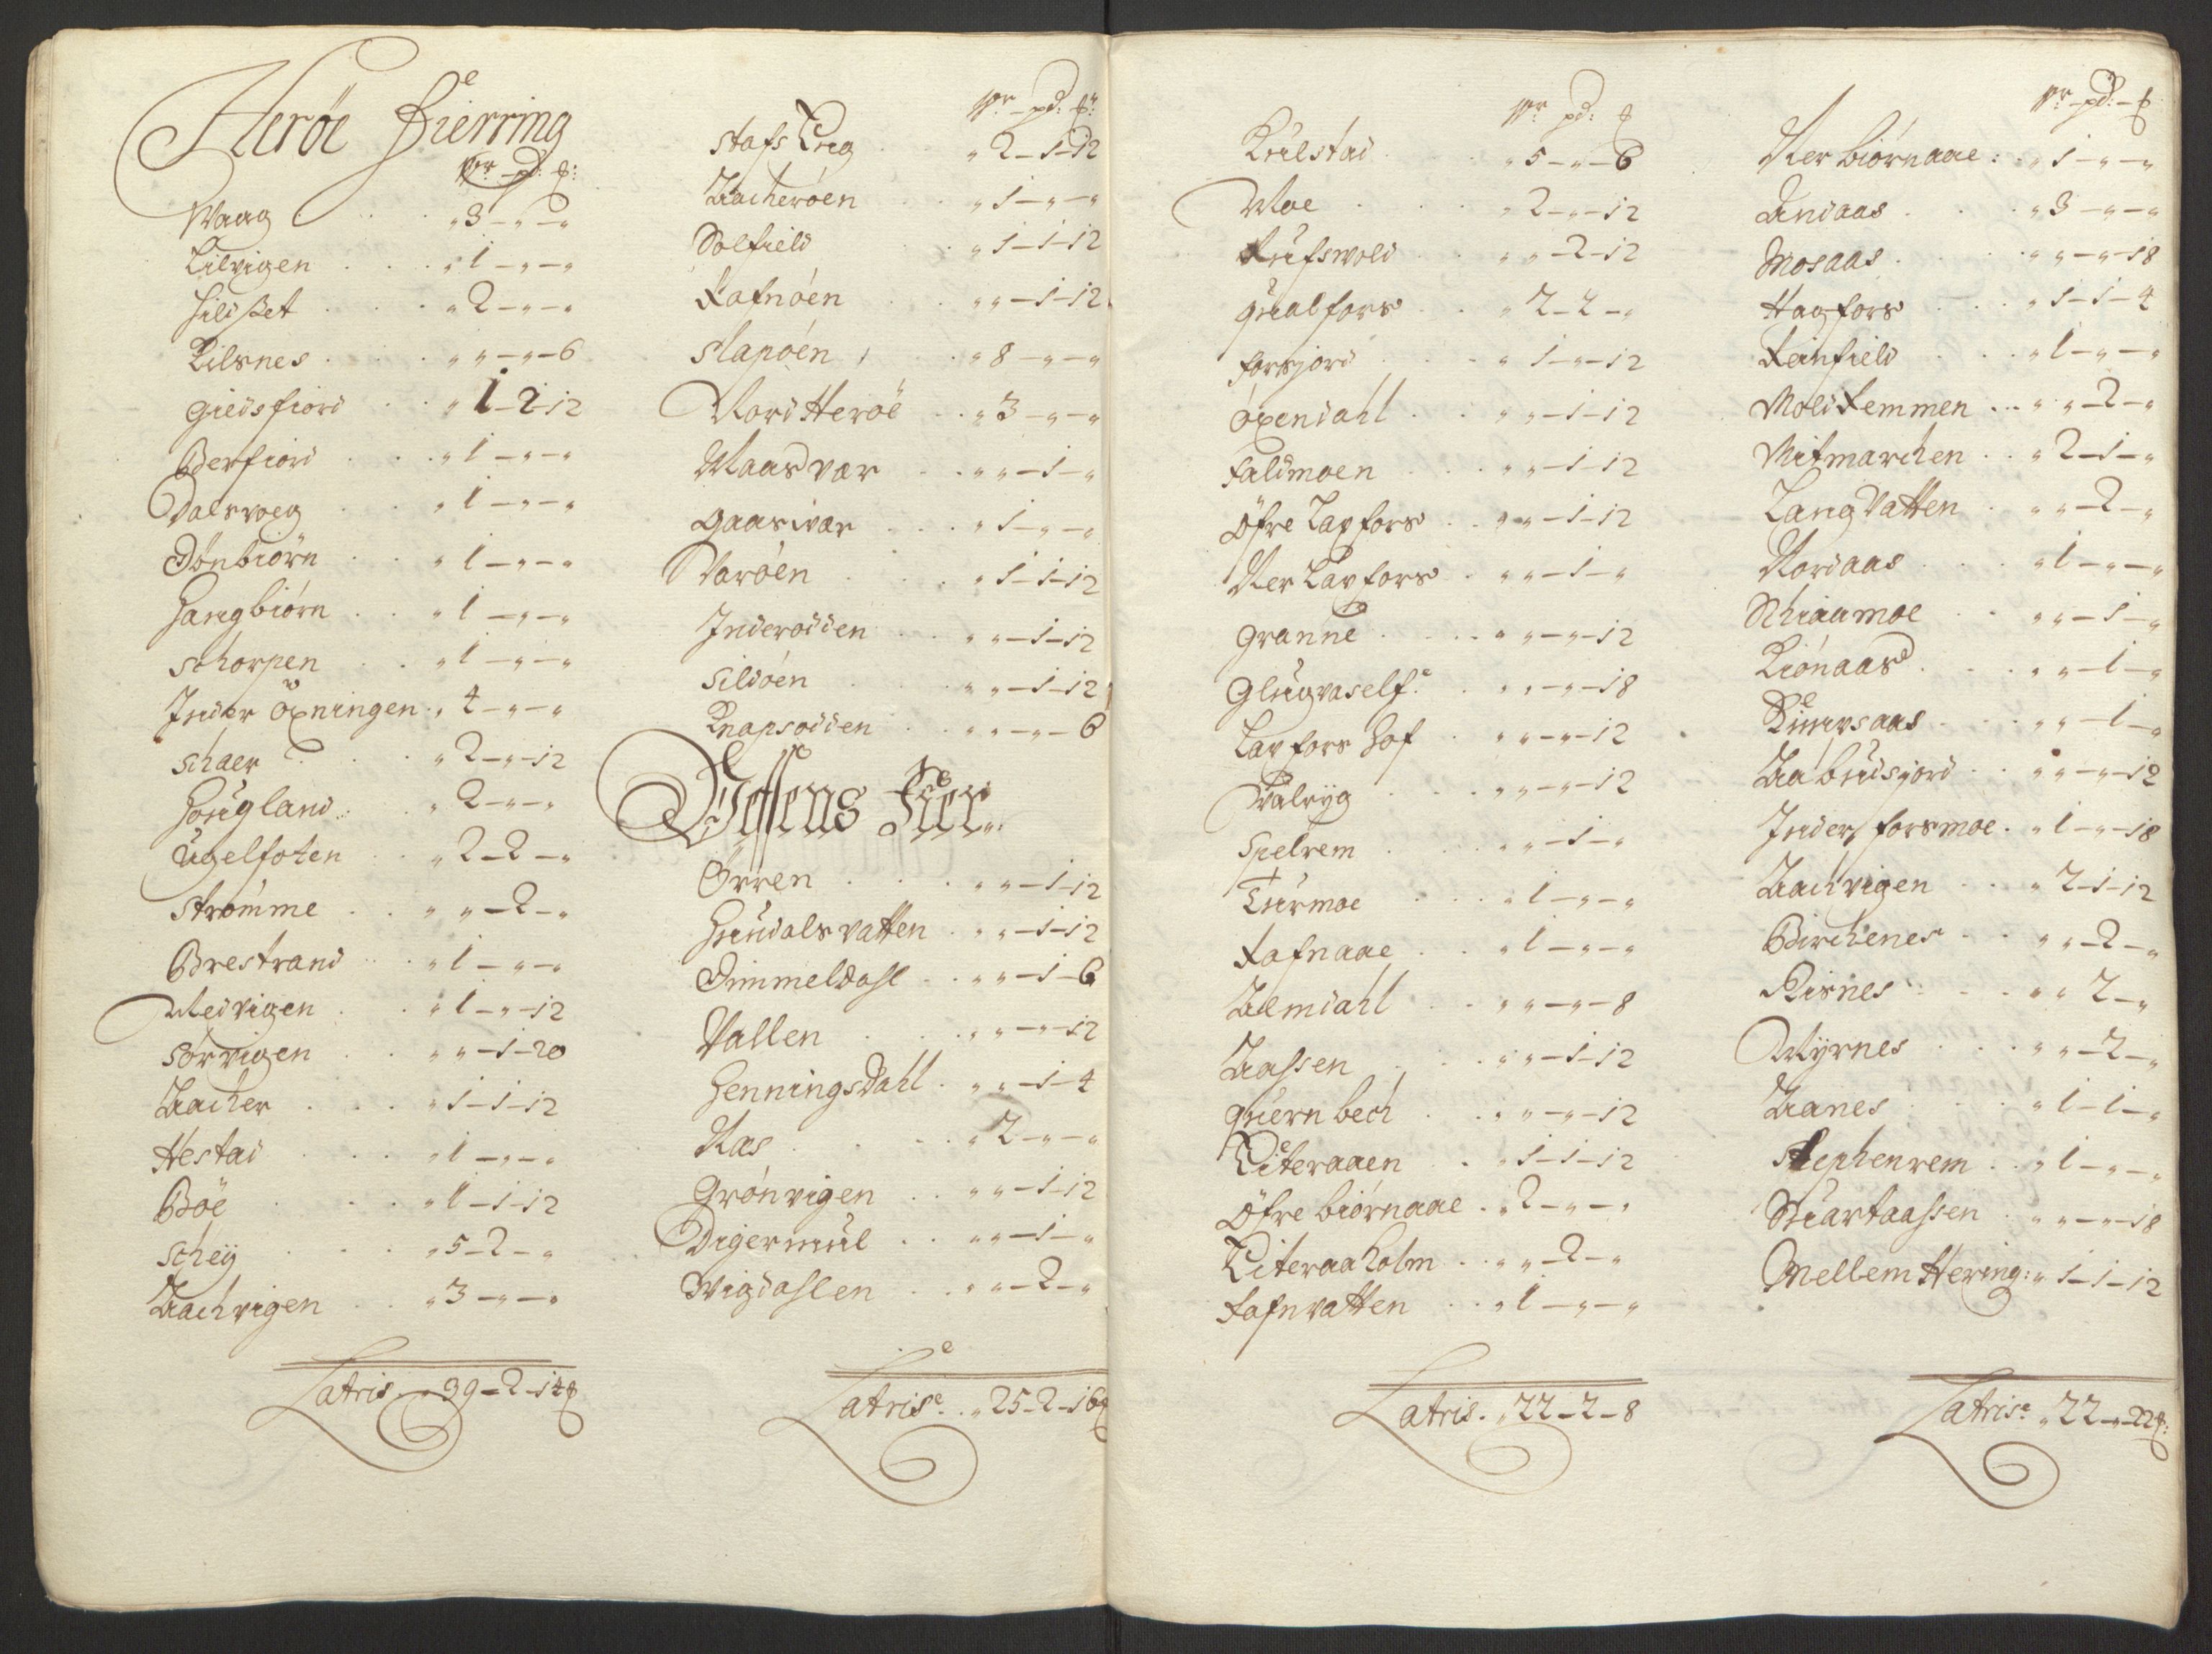 Herøe Fierring
Wr – pd: ℔:
Waag . . . „ 3 – „ – „
Lilvigen . . . „ 1 – „ – „
Hildset . . . „ 2 – „ – „
Kilsnes . . . „ „ – „ – 6
Gieldsfiord . . „ 1 – 2 – 12
Berfiord . . . „ 1 – „ – „
Dalsvog . . . „ 1 – „ – „
Dønbiørn . . „ 1 – „ – „
Hangbiørn . . „ 1 – „ – „
Schorpen . . „ 1 – „ – „
Inder Øxningen . „ 4 – „ – „
Schaer . . . „ 2 – „ – 12
Hougland . . „ 2 – „ – „
Ugelfoten . . „ 2 – 2 – „
Strømme . . „ „ – 2 – „
Brestrand . . „ 1 – „ – „
Nedvigen . . „ 1 – „ – 12
Sørvigen . . „ „ – 1 – 20
Aacher . . . „ 1 – 1 – 12
Hestad . . . „ 1 – „ – „
Bøe . . . „ 1 – 1 – 12
Schey . . . „ 5 – 2 – „
Aachvigen . . „ 3 – „ – „
Latris . „ 39 – 2 – 14 ℔
Wr – pd: ℔:
Stafs . . „ 2 – 1 – 12
Aacherøen . . „ 1 – „ – „
Solfield . . „ 1 – 1 – 12
Rafnøen . . „ „ – 1 – 12
Slapøen . . „ 8 – „ – „
Nord Herøe . . „ 3 – „ – „
Maasvær . . „ „ – 1 – „
Gaasvær . . . „ 1 – „ – „
Varøen . . . „ 1 – 1 – 12
Inderodden . . „ „ – 1 – 12
Sildøen . . „ „ – 1 – 12
Knapsodden . . „ „ – „ – 6
Vefsens Fier:
Ørren . . . „ „ – 1 – 12
Hundalsvatten . „ „ – 1 – 12
Dimmeldahl . . „ „ – 1 – 6
Vallen . . . „ „ – „ – 12
Henningsdahl . „ „ – 1 – 4
Nas . . . „ 2 – „ – „
Grønvigen . . „ „ – 1 – 12
Digermul . . „ „ – 1 – „
Vigdahlen . . „ „ – 2 – „
Latris . „ 25 – 2 – 16 ℔
Wr pd: ℔
Kulstad . . „ 5 – „ – 6
Moe . . . „ 2 – „ – 12
Rufswold . . „ „ – 2 – 12
Qualfors . . „ 2 – 2 – „
Forsjord . . „ 1 – „ – 12
Øxendahl . . „ „ – 1 – 12
Faldmoen . . „ „ – 1 – 12
Øfre Lapfors . . „ „ – 1 – 12
Ner Lapfors . „ „ – 1 – „
Granne . . . „ „ – „ – 12
Glugvaself: . „ „ – „ – 18
Lapfors Hof . „ „ – „ – 12
Valryg . . „ „ – „ – 12
Spelrem . . „ „ – 1 – „
Turmoe . . „ 1 – „ – „
Rafnaae . . „ 1 – „ – „
Almdahl . . „ „ – „ – 8
Aassen . . „ „ – 1 – 12
Quernbech . . „ „ – „ – 12
Literaaen . . „ 1 – 1 – 12
Øfre biørnaae . „ 2 – „ – „
Literaaholm . „ „ – 2 – „
Rafnvatten . . „ 1 – „ – „
Latris . „ 22 – 2 – 8
Wr – pd: – ℔
Ner biørnaae : „ 1 – „ – „
Andaas . . . „ 3 – „ – „
Mosaas . . . „ „ – „ – 18
Hagfors . . „ 1 – 1 – 4
Reinfield . . „ 1 – „ – „
Moldremmen . . „ „ – 2 – „
Mitmarchen . . „ 2 – 1 – „
Langvatten . „ „ – 2 – „
Nordaas . . „ 1 – „ – „
Schiaamoe . . „ „ – 1 – „
Kiønaas . . „ „ – 1 – „
„ „ – 1 – „
Aabudsjord . . „ „ – „ – 12
Inder forsmoe . „ 1 – „ – 18
Aachvigen . . „ 2 – 1 – 12
Birchenes . . „ „ – 2 – „
Risnes . . . „ „ 2 – „
Myrnes . . . „ „ – 2 – „
Aanes . . . „ 1 – 1 – „
Stephenrem . . „ 1 – „ – „
Suartaassen . „ „ – „ – 18
Mellem Hering : „ 1 – 1 – 12
Latris . „ 22 – „ – 22 ℔: